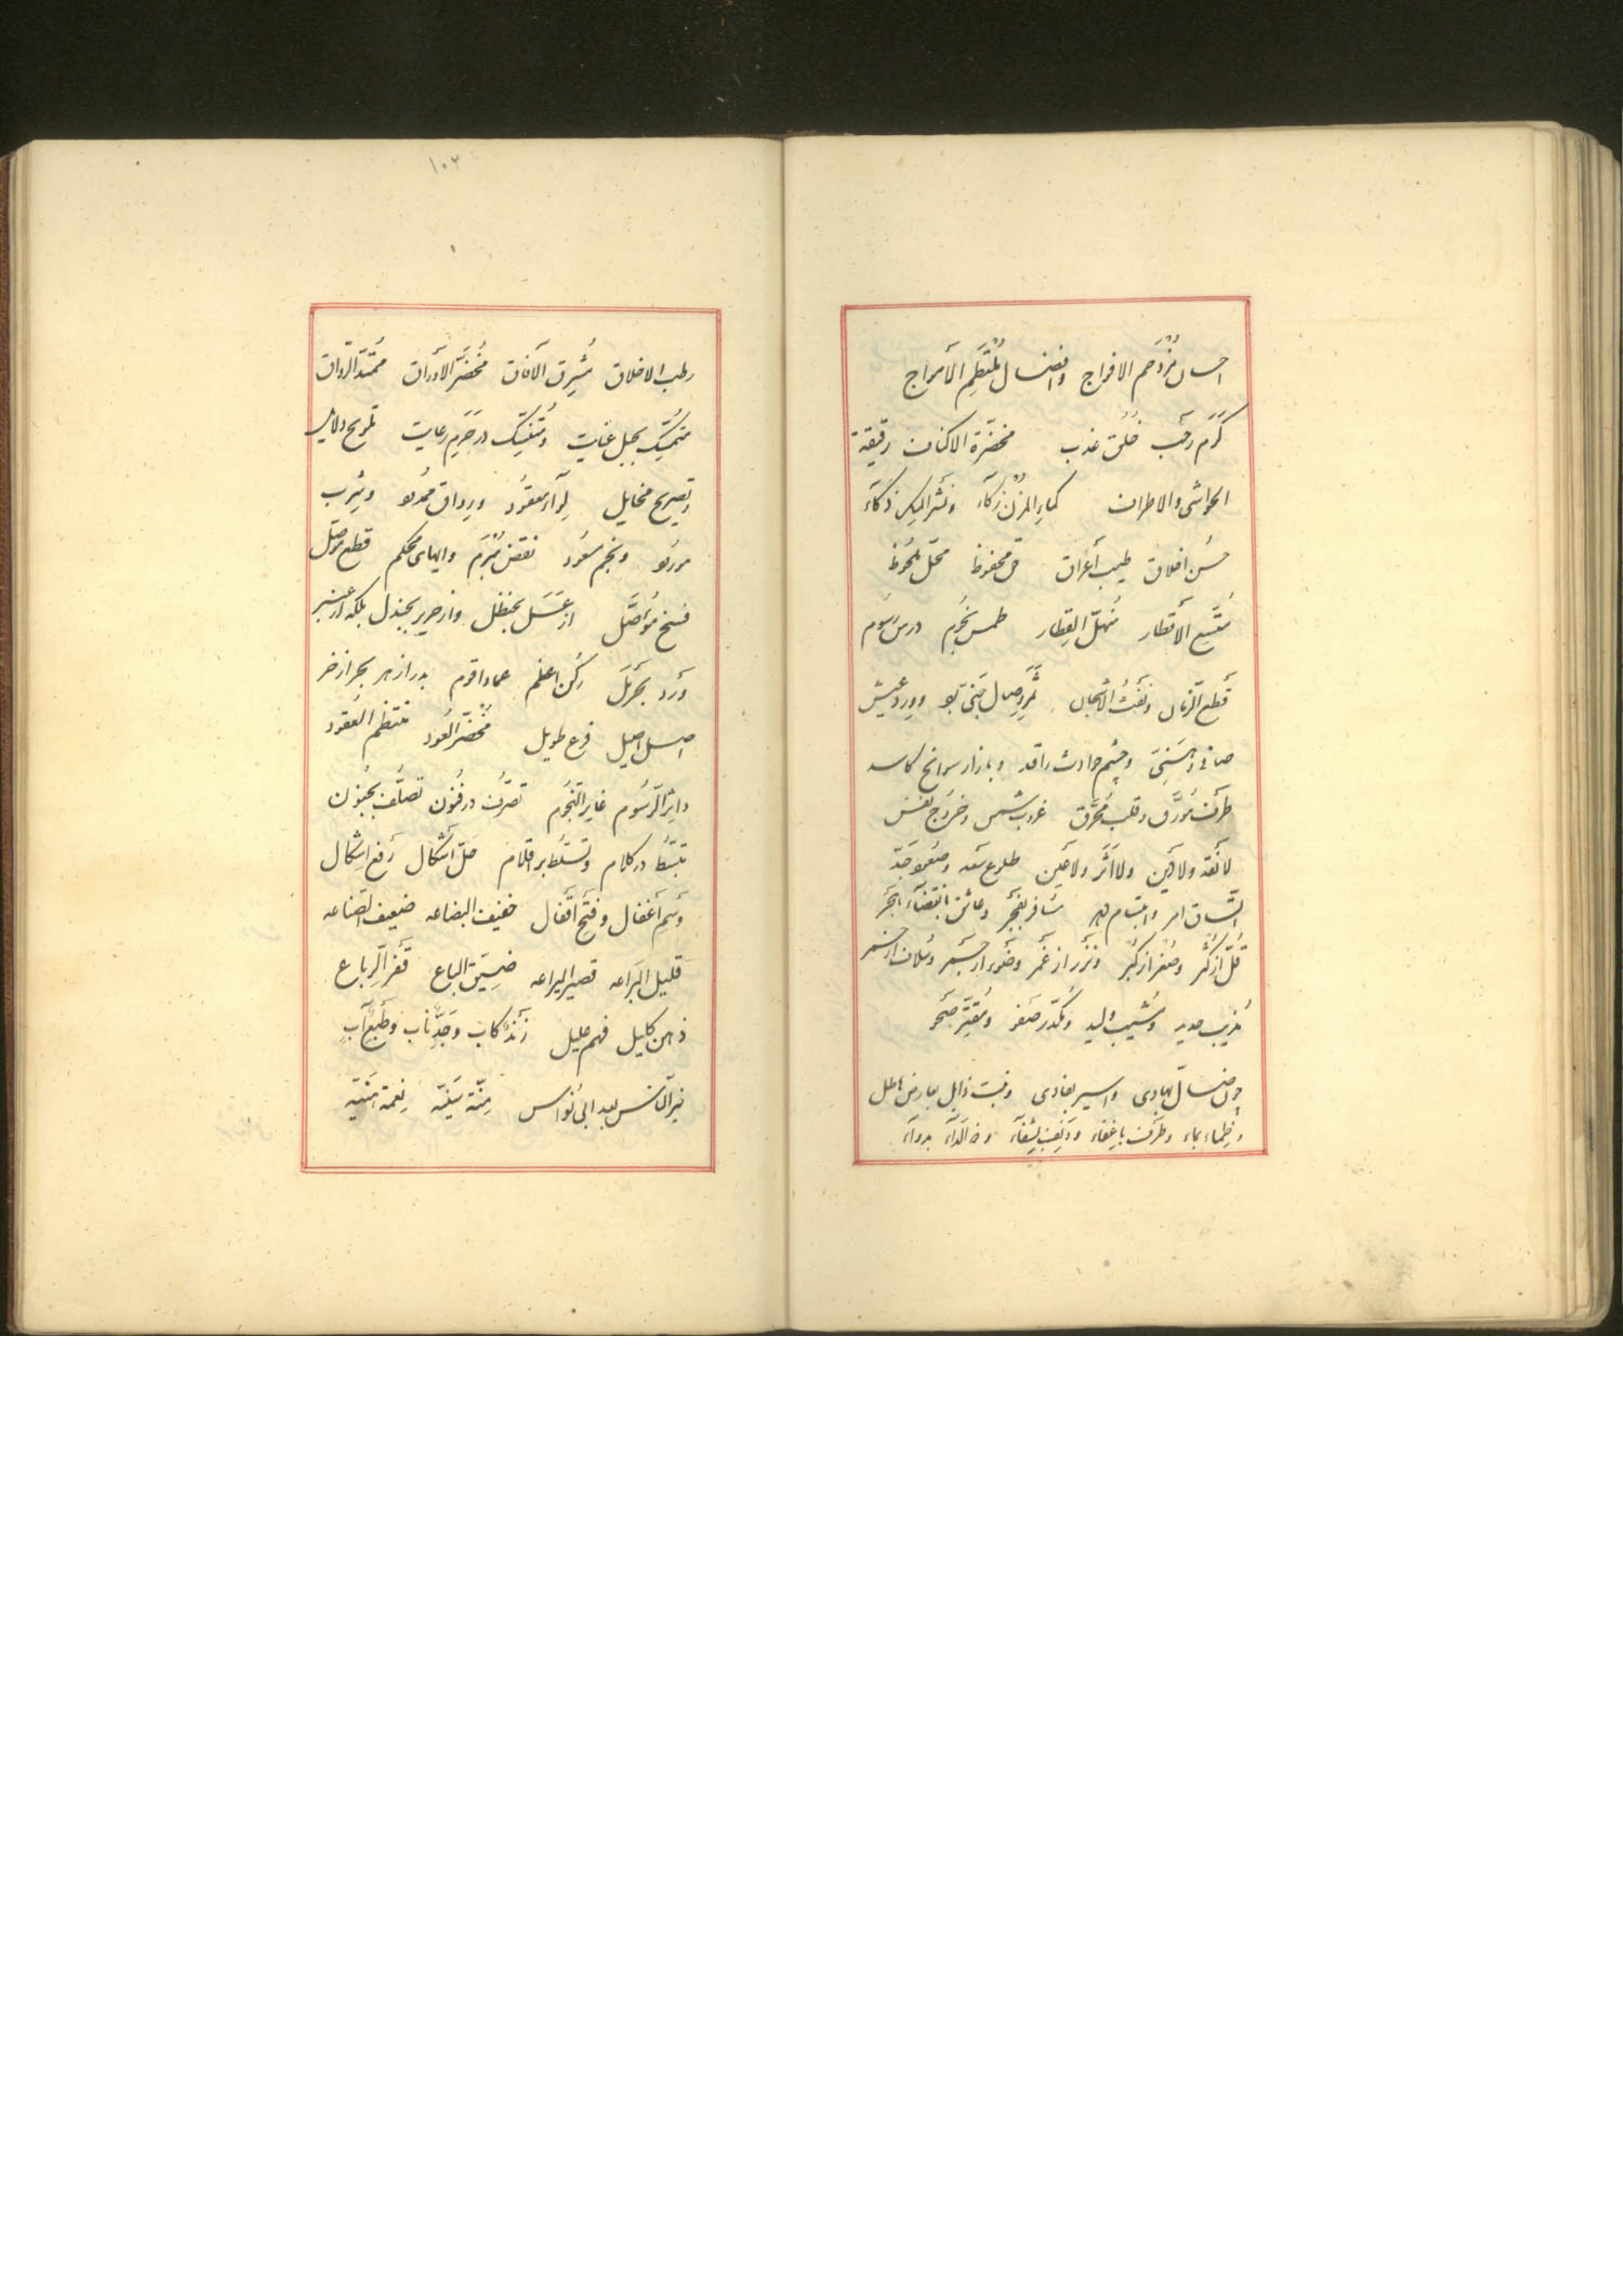 احسان مُزدَحم الافواج وافضال مُلتَطِم الأمواج
كرَم رَحب خُلق عَذب مخضرّة الاكناف رقيقة
الحواشی والاطراف كماءِ المزن زكآء ونَشر المِسک ذكآء
حُسن اخلاق طیب أعراق حق محفوظ محلّ ملحوظ
مُتّسع الأقطار مُنهلّ القِطار طمس نجوم درس رسوم
قطع الزمان ونفث الاشجان ثمر وصال جَنیّ بو وورد عیش
صافی وهَنِیّ وچشم حوادث راقد وبازار سوانح كاسد
طرف مُؤرَّق وقلب مُحرَّق غروب شمس وخروج نفس
لا نَقد ولا دَین ولا أثَر ولا عَین طلوع سَعد وصُعود جَدّ
اتّساق امر وابتسام مسافر بفَجر وعاشق بانقضآء هَجر
قُلّ از كُثر وصُغر از كُبر ونَزر از غَمر وضَوء از
مُذیب حدید ومُشیب ولید ومُكدّر صَفو ومُغیّر صَحو
چون ضالّ بهادی واسیر بفادی ونبت ذابل بعارض هاطل
وظِماء بماء وطَرف باغفاء ودَنِف بشفآء وداء بدوآء
١٠٢
رطب الاخلاق مُشرق الآفاق مُخضَرّ الأوراق مُمتدّ الرواق
متمسّک بحبل عنایت ومُتنسّک در حَرَم رعایت تلویح دلایل
وتصریح مخایل لِوآء معقُود ورِواق ممدود وشِرب
مورود ونجم مسعُود نقض مُبرَم وایهای محكم قطع موَصّل
فسخ مُؤصَّل از عَسَل بحنظل واز حریر بجندل بلكه از عنبر
وَرد بخَردَل ركُن اعظم عماد اقوم بدر ازهر بحر ازخر
اصل اصیل فرع طویل مُخضَرّ العُود منتظم العُقود
داثر الرسُوم غایر النجُوم تصرُّف در فنُون تصلُّف بجنُون
تبسّط در كلام وتسلّط بر اقلام حَلّ أشكال رَفع اِشكال
وَسم أغفال وفَتح أقفال خفیف البضاعه ضعیف الصناعه
قلیل البَراعه قصیر الیراعه ضَیِّق الباع قَفر الرِباع
ذهن كلیل فهم علیل زَند كاب وحَدّ ناب وطَبع آب
خیر النّاس بعد ابی نواس مِنّة سَنیّه نِعمة هَنیّه